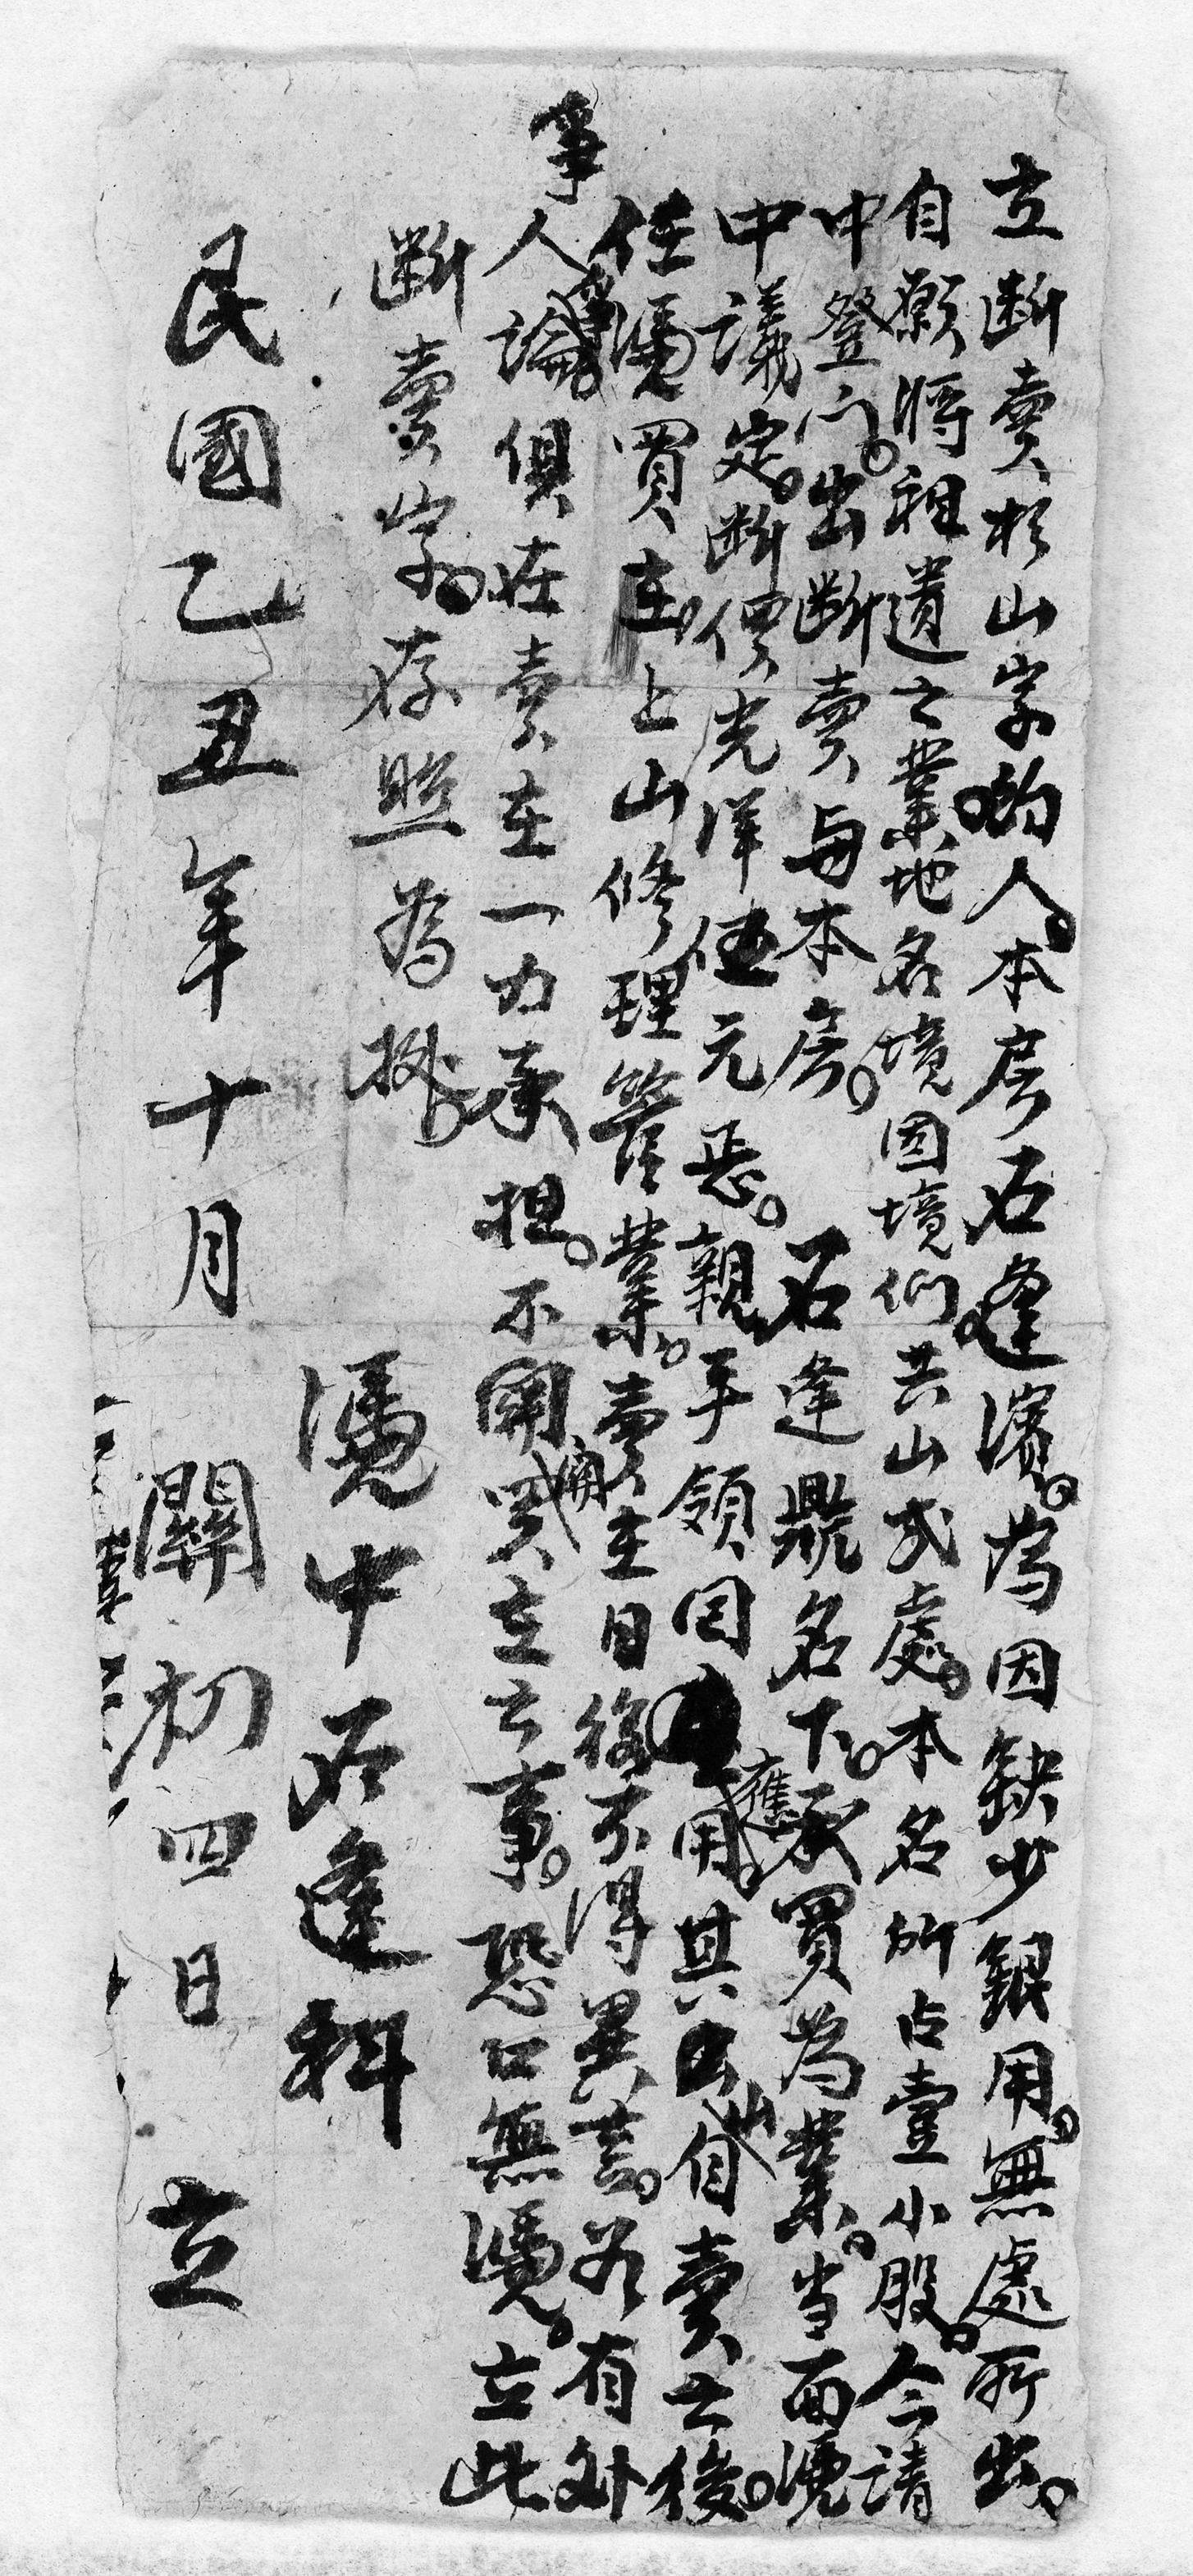 立断賣杉山字約人本房石逢濱為因缺少銀用無處所出
自願將祖遺之業地名境固境們共山弍處本名所占壹小股今請
中登门出断賣与本房石逢鼎名下承買為業当面憑
中議定断價光洋伍元急親手領囘應用其山自賣之後
任憑買主上山修理管業賣主日後不得異言若有外
人爭論俱在賣主一力承担不關買主之事恐口無憑立此
断賣字存照為據
憑中石逢科
民國乙丑年十月初四日立